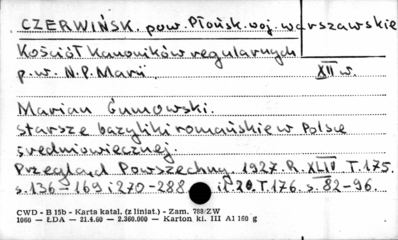 CZERWIŃSK. pow. Płońsk. woj. warszawskie
Kościół Kanoników regularnych
p.w. N.P. Marii. XII w.
Marian Gumowski.
starsze bazyliki romańskie w Polsce
średniowiecznej.
Przegląd Powszechny. 1927. R. XLIV. T. 175.
s. 136-169 i 270-288 il. 20. T. 176. s. 82-96.
CWD - B 15b - Karta katal. (z liniat.) - Zam. 788/ZW
1060 — ŁDA — 21.4.60 — 2.360.000 — Karton kl. III A1 160 g